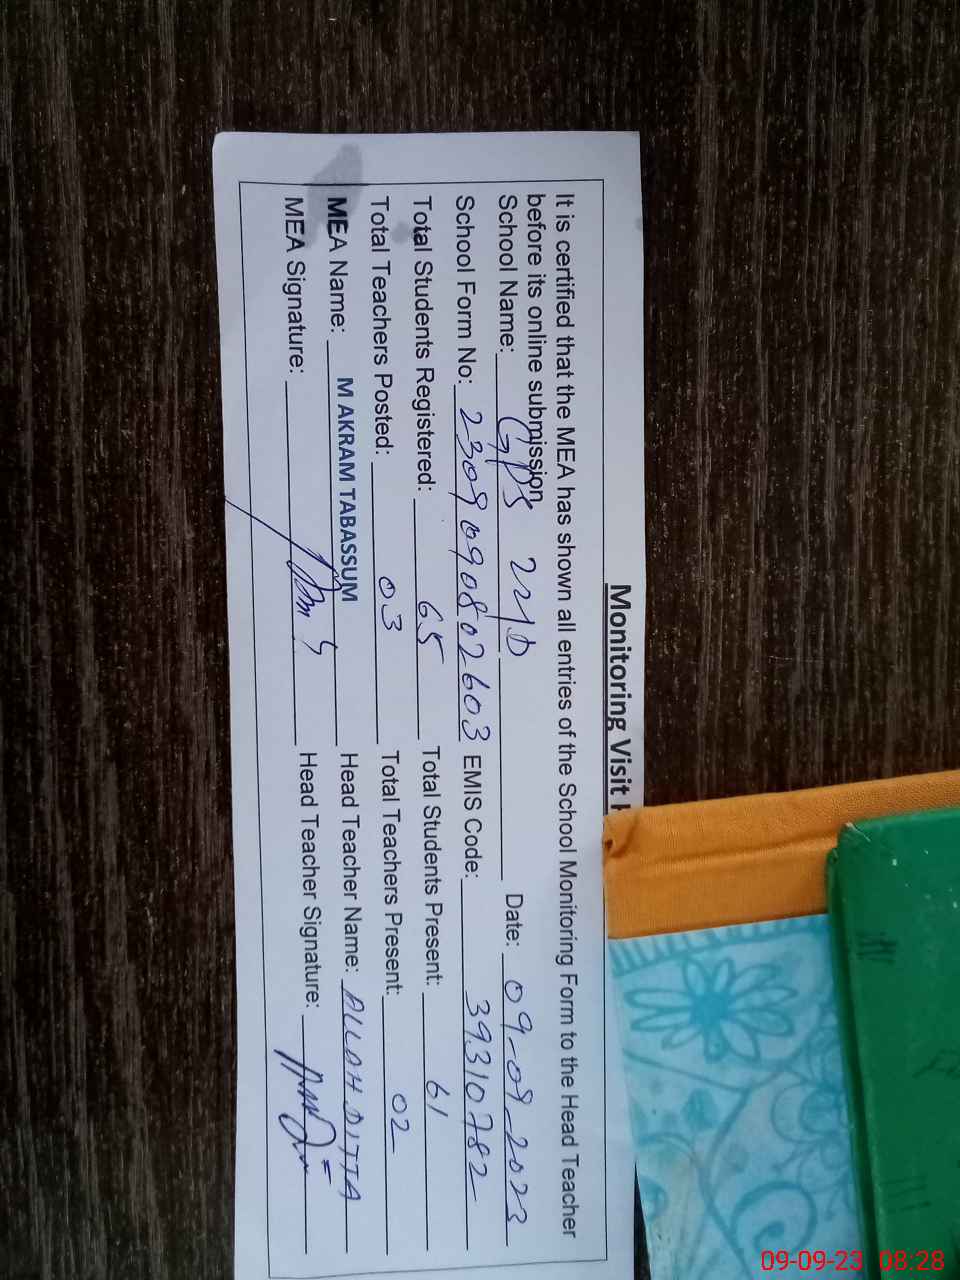 Monitoring Visit
It is certified that the MEA has shown all entries of the School Monitoring Form to the Head Teacher
before its online submission.
School Name: GPS 22/D Date: 09-09-2023
School Form No: 2309090802603 EMIS Code: 39310782
Total Students Registered: 65 Total Students Present: 61
Total Teachers Posted: 03 Total Teachers Present: 02
MEA Name: M AKRAM TABASSUM Head Teacher Name: ALLAH DITTA
MEA Signature: Head Teacher Signature:
09-09-23 08:28